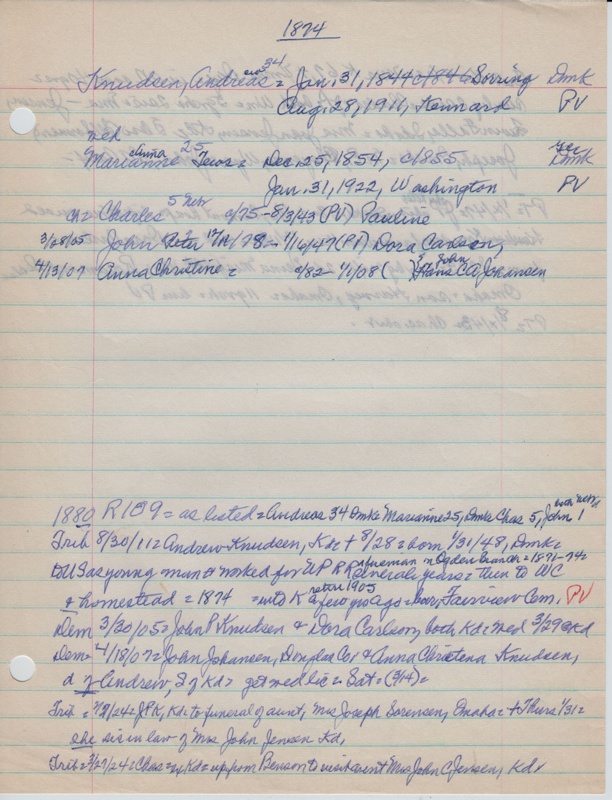 1874
Knudsen, Andreas 34 = Jan. 31, 1844 c/1846 Sorring Dmk
Aug. 28, 1911, Kennard PV
med
Marianne Anna 25 = Dec. 25, 1854, c/1855, Dmk
Jan. 31, 1922, Washington PV
ch = Charles 5 Nebr /75 - 8/3/43 (PV) Pauline
3/28/05 John Peter /78 - 1/16/47 (PV) Dora Carlson,
4/13/07 Anna Christine = /82 - 1/1/08 ( John Hans CA Johansen
1880 R109 = as listed = Andreas 34 Dmk = Marianne 25, Dmk = Chas 5, John 1 both Neb
Trib 8/30/11 = Andrew Knudsen, Kd = + 8/28 = born 1/31/48, Dmk =
to US as young man & worked for UPRR fireman on Ogden branch = 1871-74 = several years = then to WC
& homestead = 1874 = into K a few yrs ago = retire 1905 bur, Fairview Cem. PV
Dem 3/30/05 = John P Knudsen & Dora Carlson, both Kd = med 3/29 @ Kd
Dem = 4/18/07 = John Johansen, Douglas Co, & Anna Christena Knudsen,
d of Andrew, S of Kd = get med lic = Sat =
Trib = /24 = JPK, Kd = to funeral of aunt, Mrs Joseph Sorensen, Omaha = + Thurs 1/31 =
she sis in law of Mrs John Jensen Kd,
Trib = 3/27/24 = Chas = Kd = up from Benson to visit aunt Mrs John C Jensen, Kd